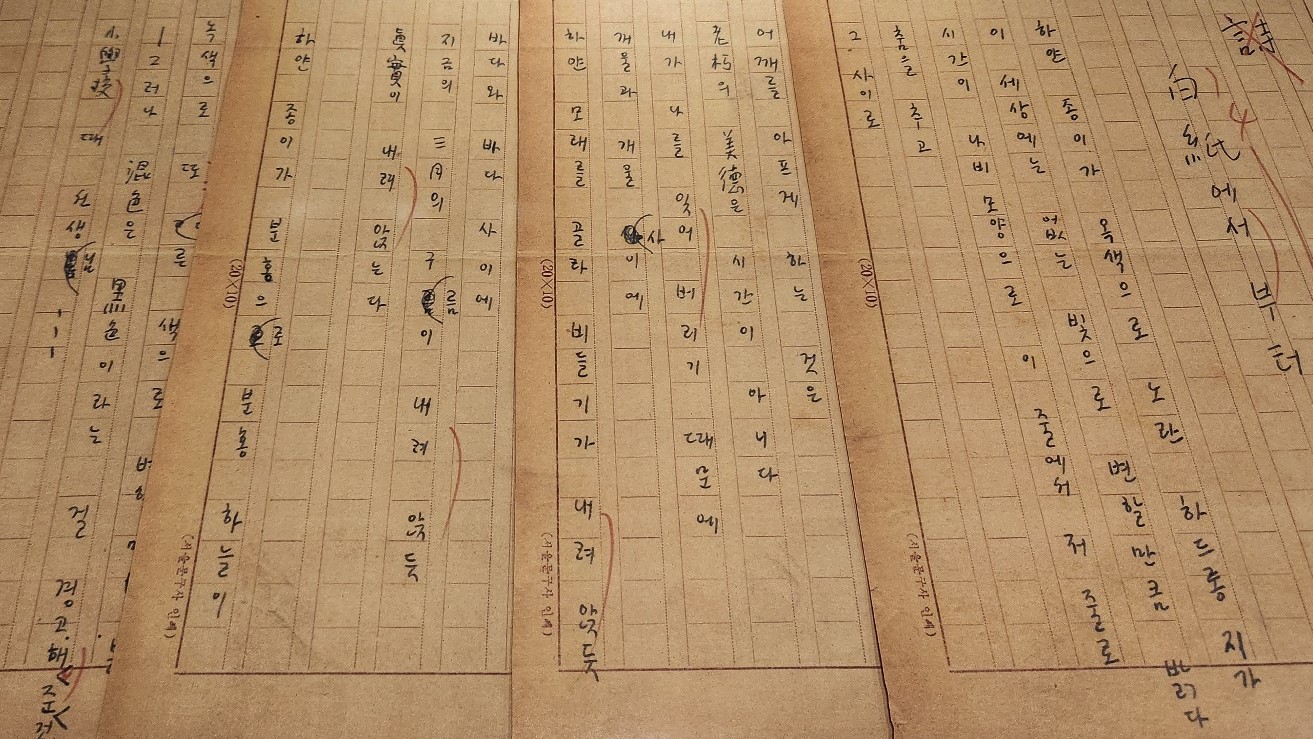 詩
白紙에서부터
하얀 종이가 옥색으로 노란 하드롱지가
이 세상에는 없는 빛으로 변할 만큼 밝다
시간이 나비 모양으로 이 줄에서 저 줄로
춤을 추고
그 사이로
(20×10)
(서울문구사 인쇄)
어깨를 아프게 하는 것은
老朽의 美德은 시간이 아니다
내가 나를 잊어버리기 때문에
개울과 개울 사이에
하얀 모래를 골라 비둘기가 내려 앉듯
(20×10)
(서울문구사 인쇄)
바다와 바다 사이에
지금의 三月의 구름이 내려 앉듯
眞實이 내려 앉는다
하얀 종이가 분홍으로 분홍 하늘이
(20×10)
(서울문구사 인쇄)
녹색으로 또 른 색으로 변
―그러나 混色은 黑色이라는 걸 경고해준
小學校 때 선생님 ---